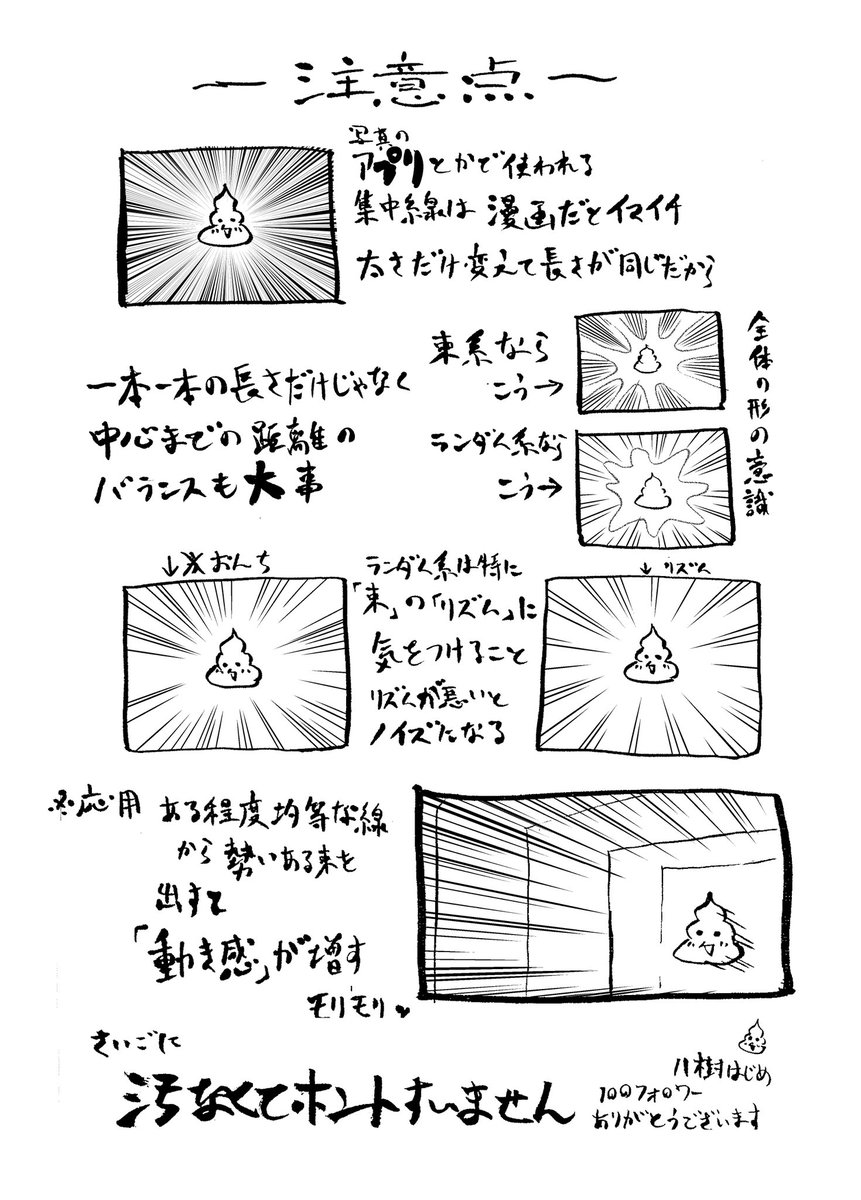 ー注意点ー
写真の
アプリとかで使われる
集中線は漫画だとイマイチ
太さだけ変えて長さが同じだから
一本一本の長さだけじゃなく
中心までの距離の
バランスも大事
束系なら
こう→
ランダム系なら
こう→
全体の形の意識
↓※おんち
ランダム系は特に
「束」の「リズム」に
気をつけること
リズムが悪いと
ノイズになる
↓リズム
※応用 ある程度均等な線
から勢いある束を
出すと
「動き感」が増す
モリモリ
さいごに
汚なくてホントすいません
川樹はじめ
100フォロワー
ありがとうございます